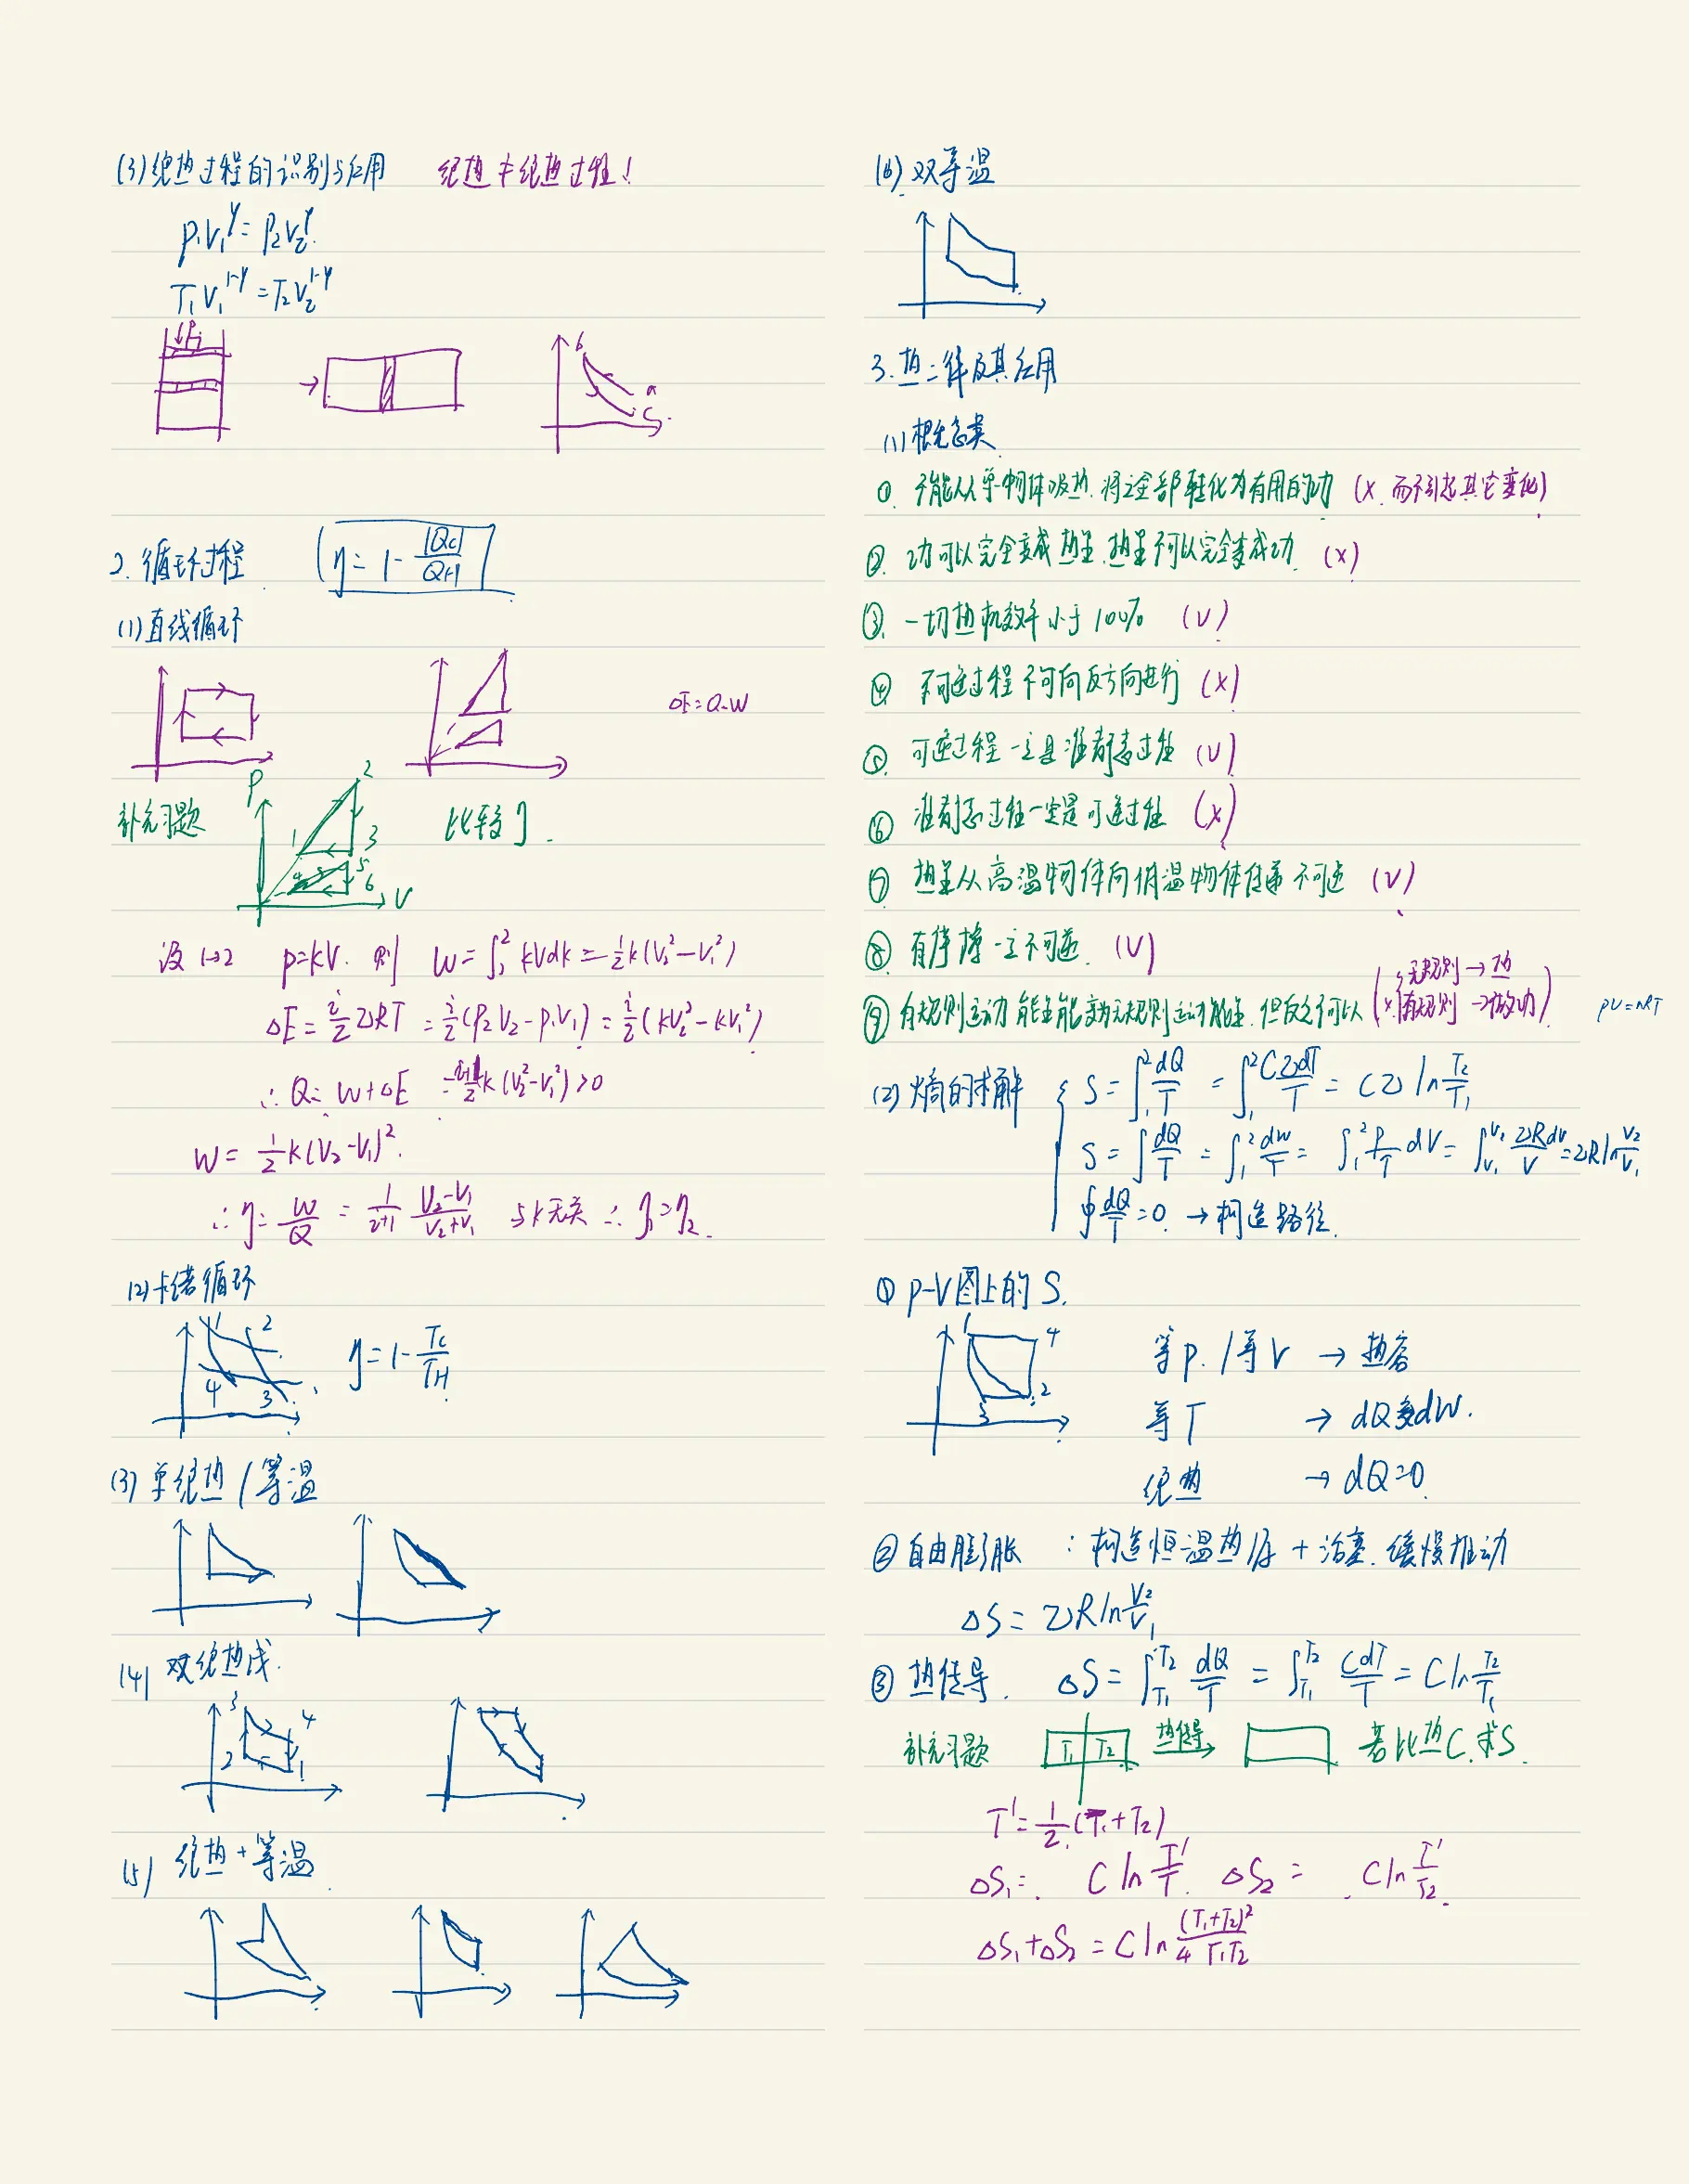 (3) 绝热过程的识别与应用 绝热≠绝热过程!
p₁V₁^γ = p₂V₂^γ.
T₁V₁^{1-γ} = T₂V₂^{1-γ}
b
a
c
2. 循环过程 η = 1 - |Qc|/QH
(1) 直线循环
ΔE = Q-W
补充习题 比较η.
P 2 1 3 4 5 6 V
设 1→2 p=kV. 则 W = ∫₁² kVdk = ½k(V₂²-V₁²)
ΔE = i/2 νRT = i/2 (P₂V₂-P₁V₁) = i/2 (kV₂²-kV₁²)
∴ Q = W+ΔE = (i+1)/2 k(V₂²-V₁²) >0
W = ½k(V₂-V₁)².
∴ η = W/Q = 1/(i+1) (V₂-V₁)/(V₂+V₁) 与k无关 ∴ η₁=η₂.
(2) 卡诺循环
1 2 4 3 η = 1 - Tc/TH
(3) 单绝热/等温
(4) 双绝热线.
3 4 2 1
(5) 绝热+等温
(6) 双等温
3. 热二律及其应用
(1) 概念类
① 不能从单一物体吸热.将之全部转化为有用的功 (X.而不引起其它变化)
② 功可以完全变成热量.热量不可以完全变成功 (X)
③ 一切热机效率小于100% (√)
④ 不可逆过程不可向反方向进行 (X)
⑤ 可逆过程一定是准静态过程 (√)
⑥ 准静态过程一定是可逆过程 (X)
⑦ 热量从高温物体向低温物体传递不可逆 (√)
⑧ 有摩擦一定不可逆. (√)
⑨ 有规则运动能量能变为无规则运动能量.但反之不可以 (X. 无规则→热 有规则→做功) pV=nRT
(2) 熵的求解 S = ∫₁² dQ/T = ∫₁² CνdT/T = Cν ln T₂/T₁
S = ∫ dQ/T = ∫₁² dW/T = ∫₁² P/T dV = ∫_{V₁}^{V₂} νRdV/V = νR ln V₂/V₁
∮ dQ/T = 0. → 构造路径.
① p-V图上的 S.
1 4 3 2
等p./等V → 热容
等T → dQ变dW.
绝热 → dQ=0.
② 自由膨胀 : 构造恒温热库+活塞.缓慢推动
ΔS = νR ln V₂/V₁
③ 热传导. ΔS = ∫_{T₁}^{T₂} dQ/T = ∫_{T₁}^{T₂} CdT/T = C ln T₂/T₁
补充习题 T₁ T₂ 热传导 若比热C.求S.
T' = ½(T₁+T₂)
ΔS₁ = C ln T'/T. ΔS₂ = C ln T'/T₂.
ΔS₁+ΔS₂ = C ln (T₁+T₂)²/4T₁T₂